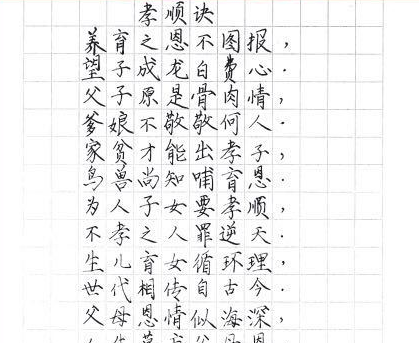 孝顺诀
养育之恩不图报，
望子成龙白费心.
父子原是骨肉情，
爹娘不敬敬何人.
家贫才能出孝子，
鸟兽尚知哺育恩.
为人子女要孝顺，
不孝之人罪逆天.
生儿育女循环理，
世代相传自古今.
父母恩情似海深，